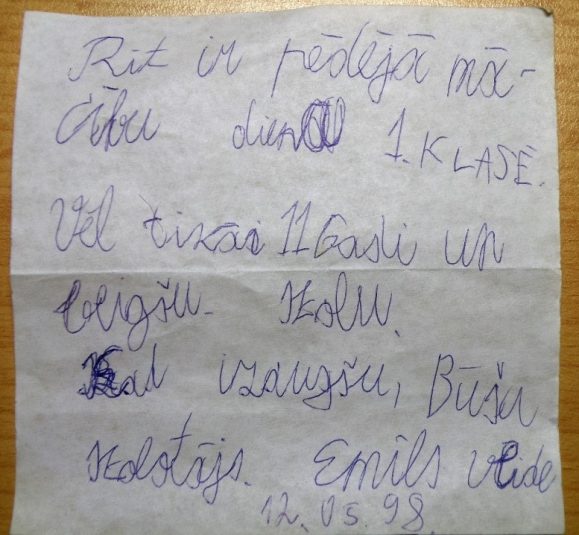 Rīt ir pēdējā mā-
cību diena 1. KLASĒ.
Vēl tikai 11 Gadi un
beigšu skolu.
Kad izaugšu, Būšu
skolotājs. Emīls
12. 05. 98.